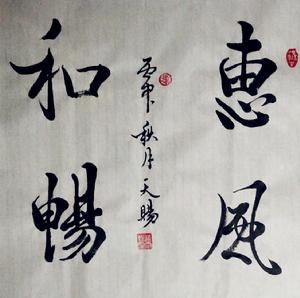 惠風
和暢
丙申秋月天賜